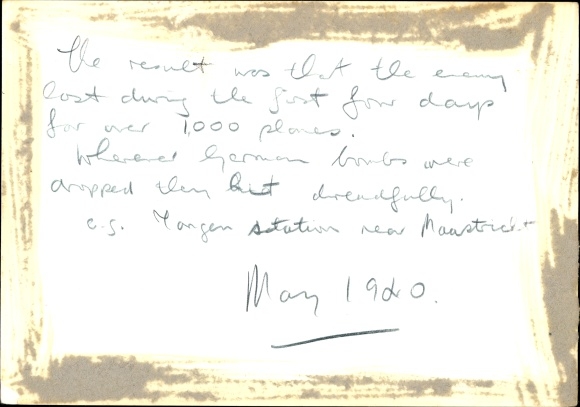 The result was that the enemy
lost during the first four days
far over 1,000 planes.
Wherever German bombs were
dropped they hit dreadfully.
e.g. Tongen station near Maastricht
May 1940.